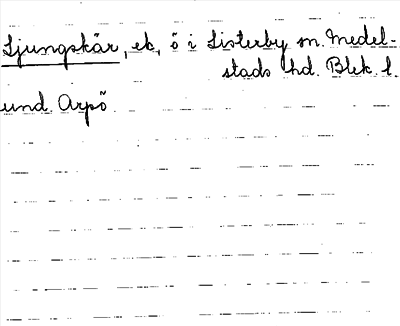 Ljungskär, ek, ö i Listerby sn. Medel-
stads hd. Blek. l.
und. Arpö.